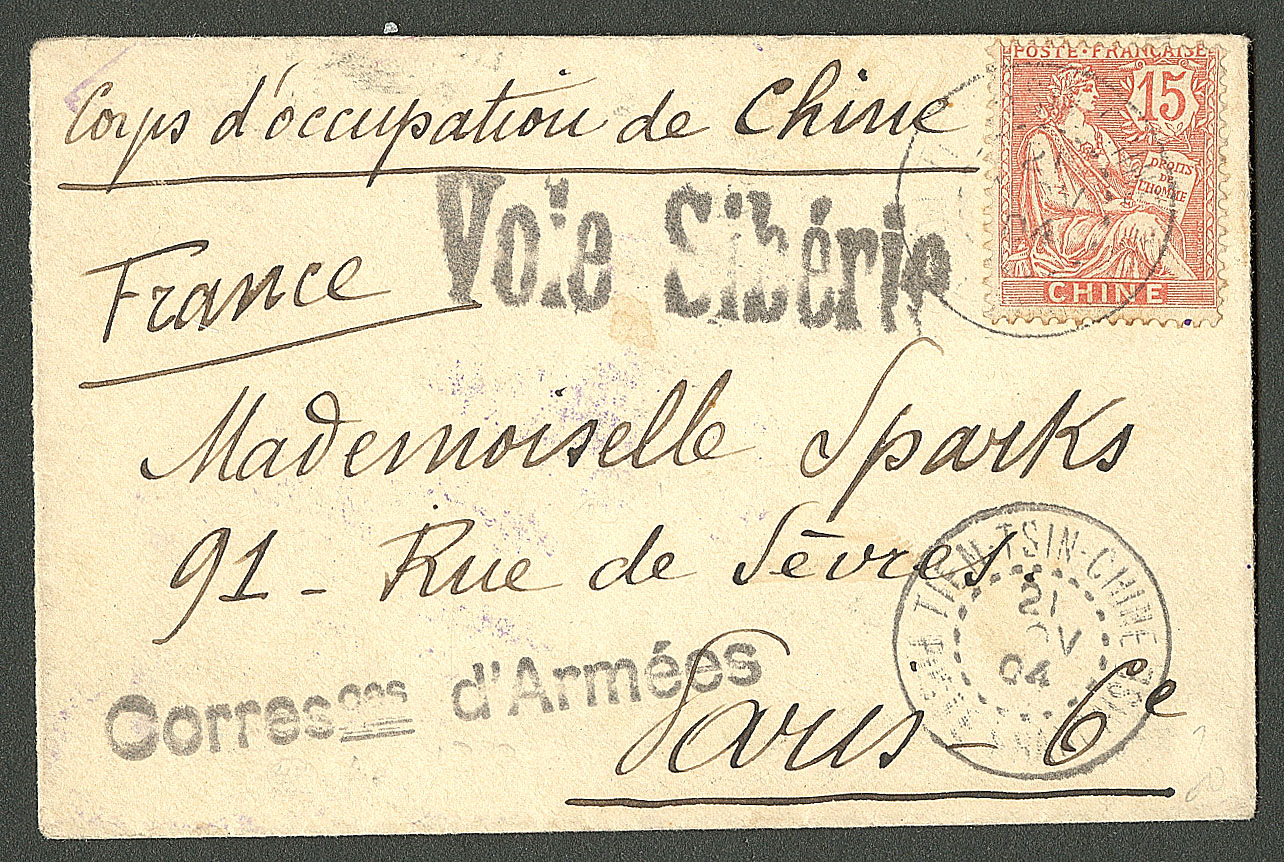 Corps d'occupation de Chine
POSTE · FRANÇAISE
15
DROITS
DE
L'HOMME
CHINE
Voie Sibérie
France
Mademoiselle Sparks
91 - Rue de Sèvres.
Paris - 6e
Corresces d'Armées
TIEN-TSIN-CHINE
21
04